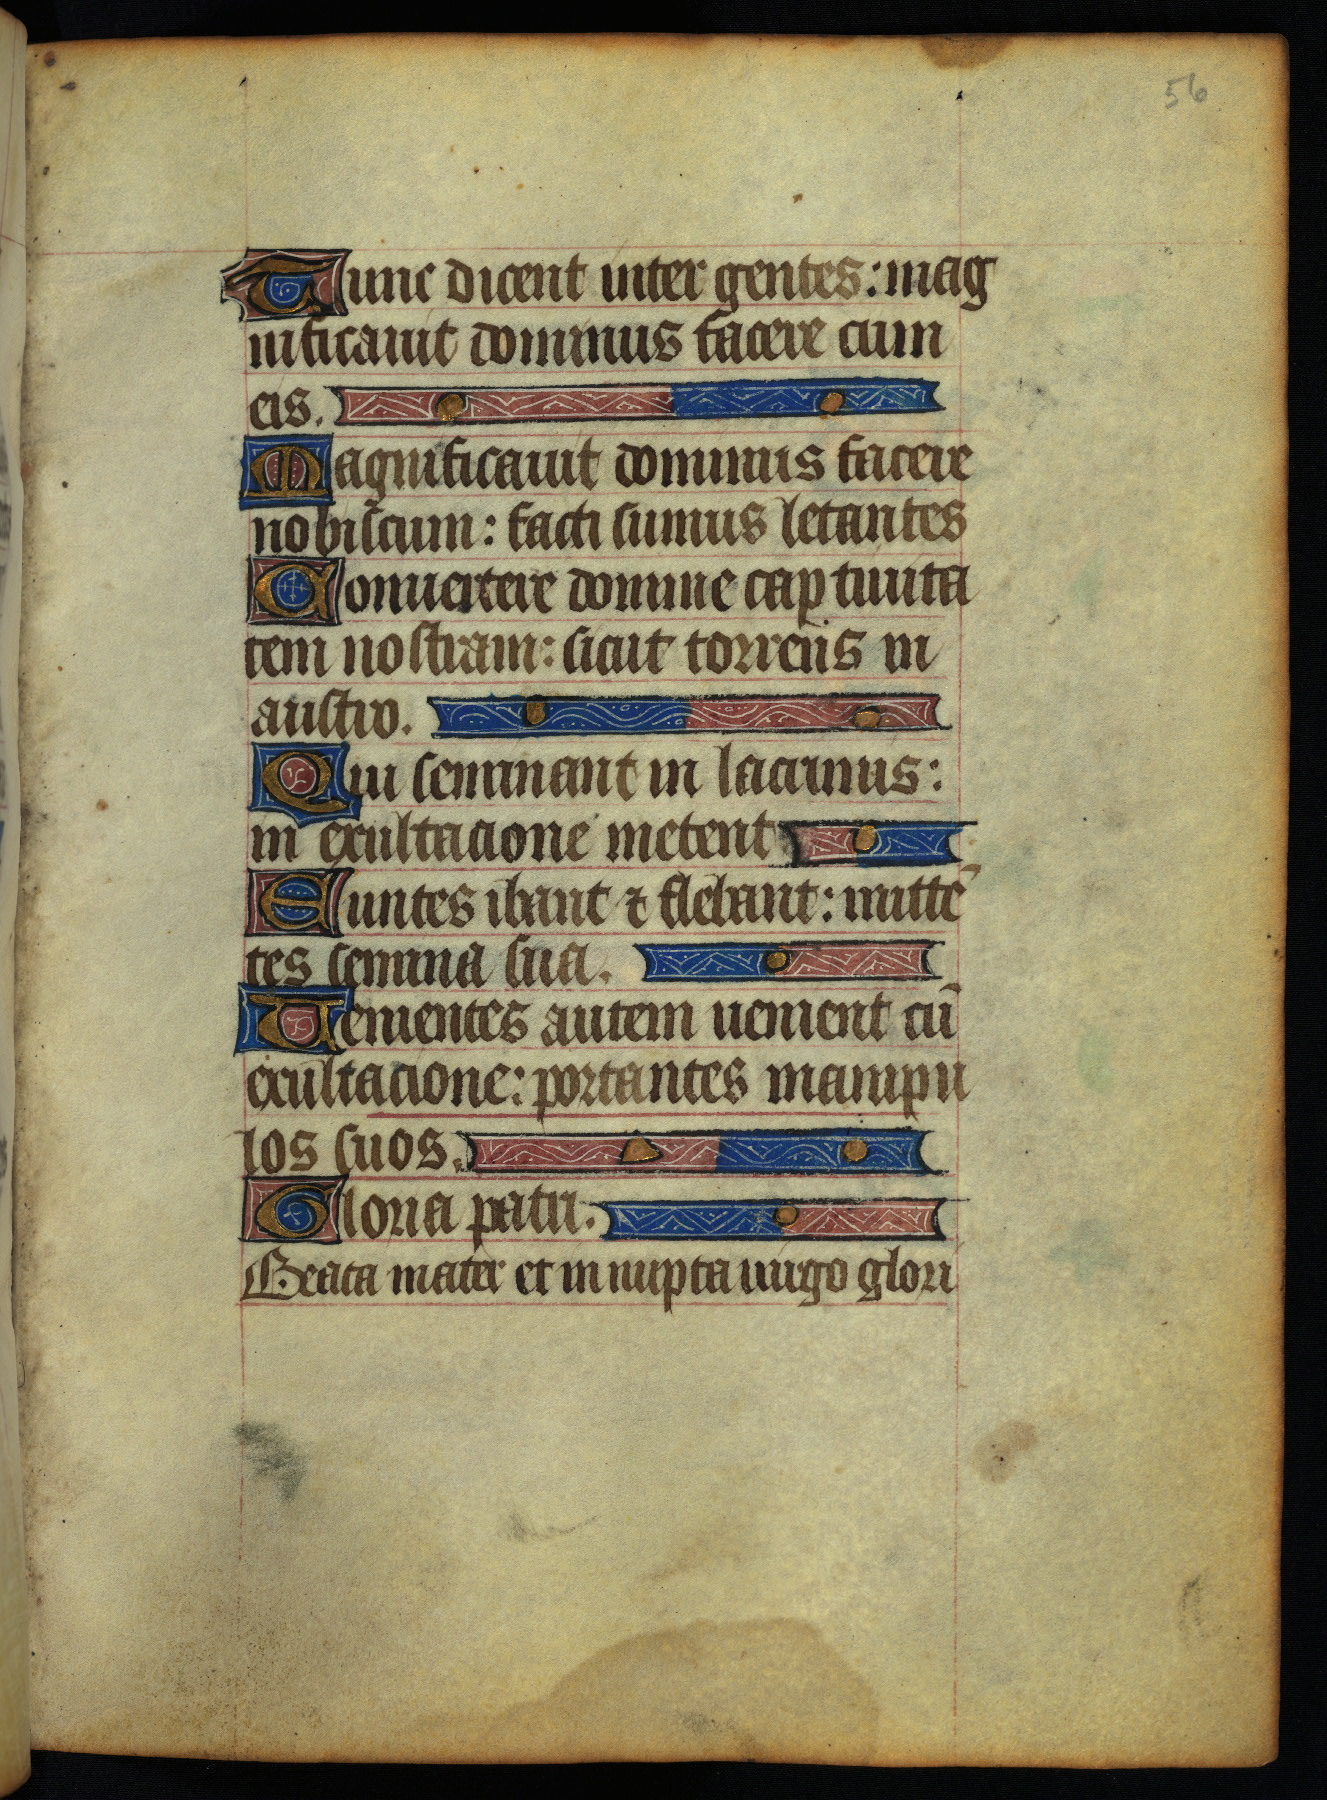 56
Tunc dicent inter gentes: mag
nificauit dominus facere cum
eis.
Magnificauit dominus facere
nobiscum: facti sumus letantes
Conuertere domine captiuita
tem nostram: sicut torrens in
austro.
Qui seminant in lacrimis:
in exultacione metent
Euntes ibant ⁊ flebant: mittē
tes semina sua.
Uenientes autem uenient cū
exultacione: portantes manipu
los suos.
Gloria patri.
Beata mater et innupta uirgo glori